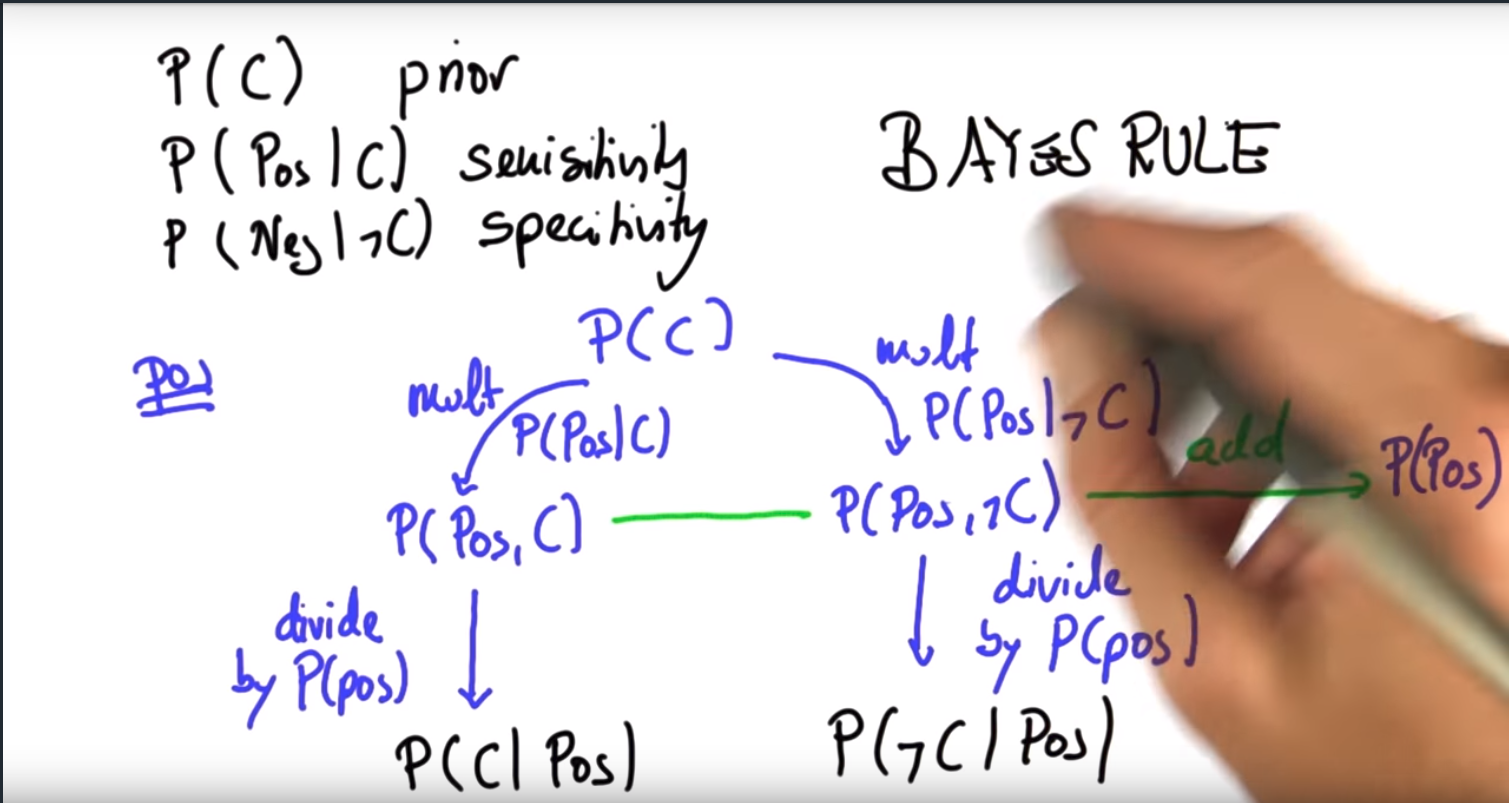 P(C) prior
P(Pos|C) sensisitivity
P(Neg|¬C) specitivity
BAYES RULE
Pos
P(C)
mult
P(Pos|C)
mult
P(Pos|¬C)
P(Pos,C)
P(Pos,¬C)
add
P(Pos)
divide
by P(pos)
divide
by P(pos)
P(C|Pos)
P(¬C|Pos)